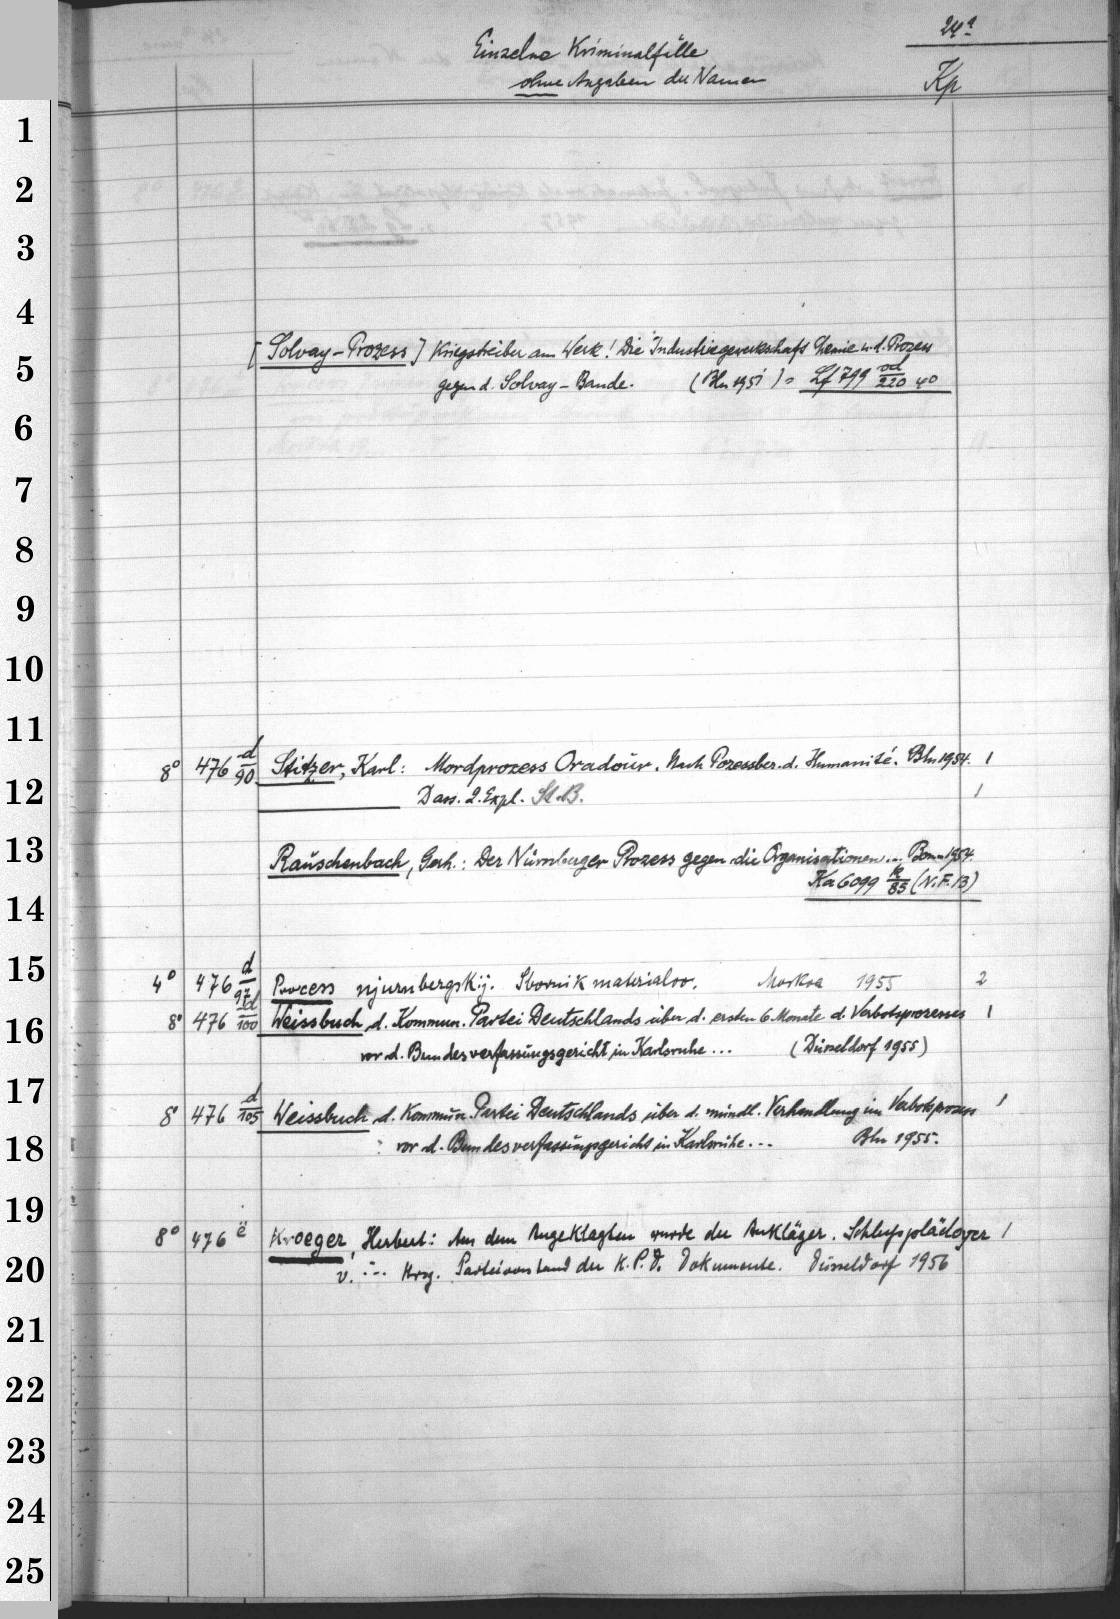 24ª
Einzelne Kriminalfälle
ohne Angaben der Namen
Kp
1
2
3
4
[Solvay-Prozess] Kriegstreiber am Werk! Die Industriegewerkschaft Chemie u. d. Prozess
5
gegen d. Solvay-Bande. (Bln 1951) = Lf 799 od/220 40
6
7
8
9
10
11
8° 476 d/90 Stitzer, Karl: Mordprozess Oradour. Nach Pozessber. d. Humanité. Bln 1954. 1
12
Dass. 2. Expl. St.B. 1
13
Rauschenbach, Gerh.: Der Nürnberger Prozess gegen die Organisationen... Bonn 1954.
Ka 6099 k/85 (N.F. 13)
14
15
4° 476 d/97 Process njurnbergskij. Sbornik materialov. Moskva 1955 2
16
8° 476 d/100 Weissbuch d. Kommun. Partei Deutschlands über d. ersten 6 Monate d. Verbotsprozesses 1
vor d. Bundesverfassungsgericht in Karlsruhe... (Düsseldorf 1955)
17
8° 476 d/105 Weissbuch d. Kommun. Partei Deutschlands über d. mündl. Verhandlung im Verbotsprozess 1
18
vor d. Bundesverfassungsgericht in Karlsruhe... Bln 1955.
19
8° 476 ë Kroeger, Herbert: Aus dem Angeklagten wurde der Ankläger. Schlussplädoyer 1
20
v. -:- Hrsg. Parteivorstand der K.P.D. Dokumente. Düsseldorf 1956
21
22
23
24
25